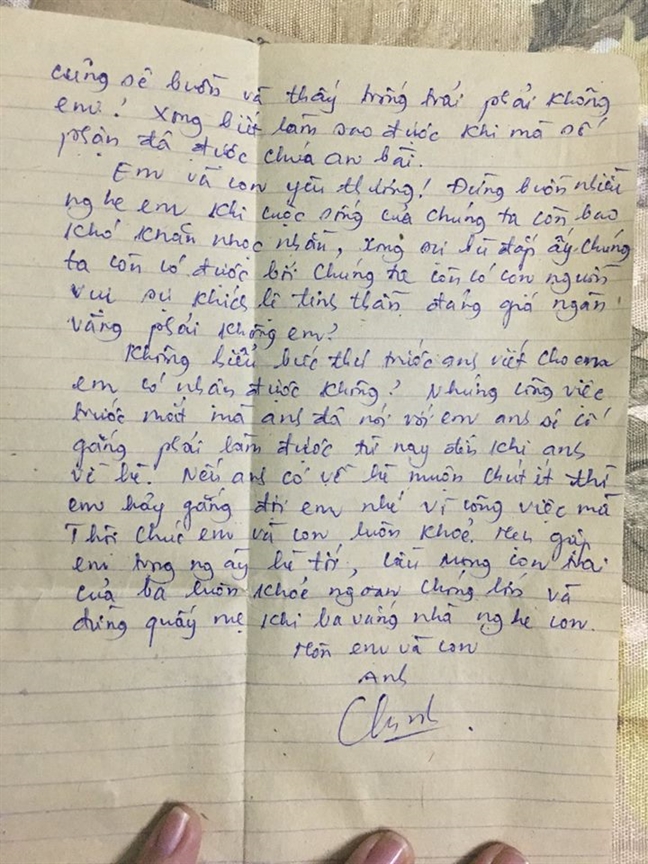 cũng sẽ buồn và thấy trống trải phải không
em! Xong biết làm sao được khi mà số
phận đã được chúa an bài.
Em và con yêu thương! Đừng buồn nhiều
nghe em khi cuộc sống của chúng ta còn bao
khó khăn nhọc nhằn, xong sự bù đắp ấy chúng
ta còn có được bởi chúng ta còn có con nguồn
vui sự khích lệ tinh thần đáng giá ngàn
vàng phải không em?
Không hiểu bức thư trước anh viết cho em
em có nhận được không? Những công việc
trước mắt mà anh đã nói với em anh sẽ cố
gắng phải làm được từ nay đến khi anh
về hè. Nếu anh có về hè muộn chút ít thì
em hãy gắng đợi em nhé vì công việc mà
Thôi chúc em và con luôn khoẻ. Hẹn gặp
em trong ngày hè tới, cầu mong con trai
của ba luôn khoẻ ngoan chóng lớn và
đừng quấy mẹ khi ba vắng nhà nghe con.
Hôn em và con
Anh